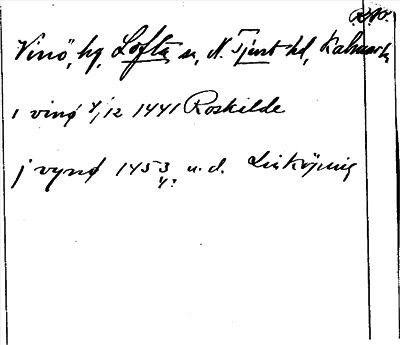 Vinö, hg, Lofta sn, N. Tjust hd, Kalmar l.
i vinø 4/12 1441 Roskilde
j vynø 1453 u. d. Linköping
4?